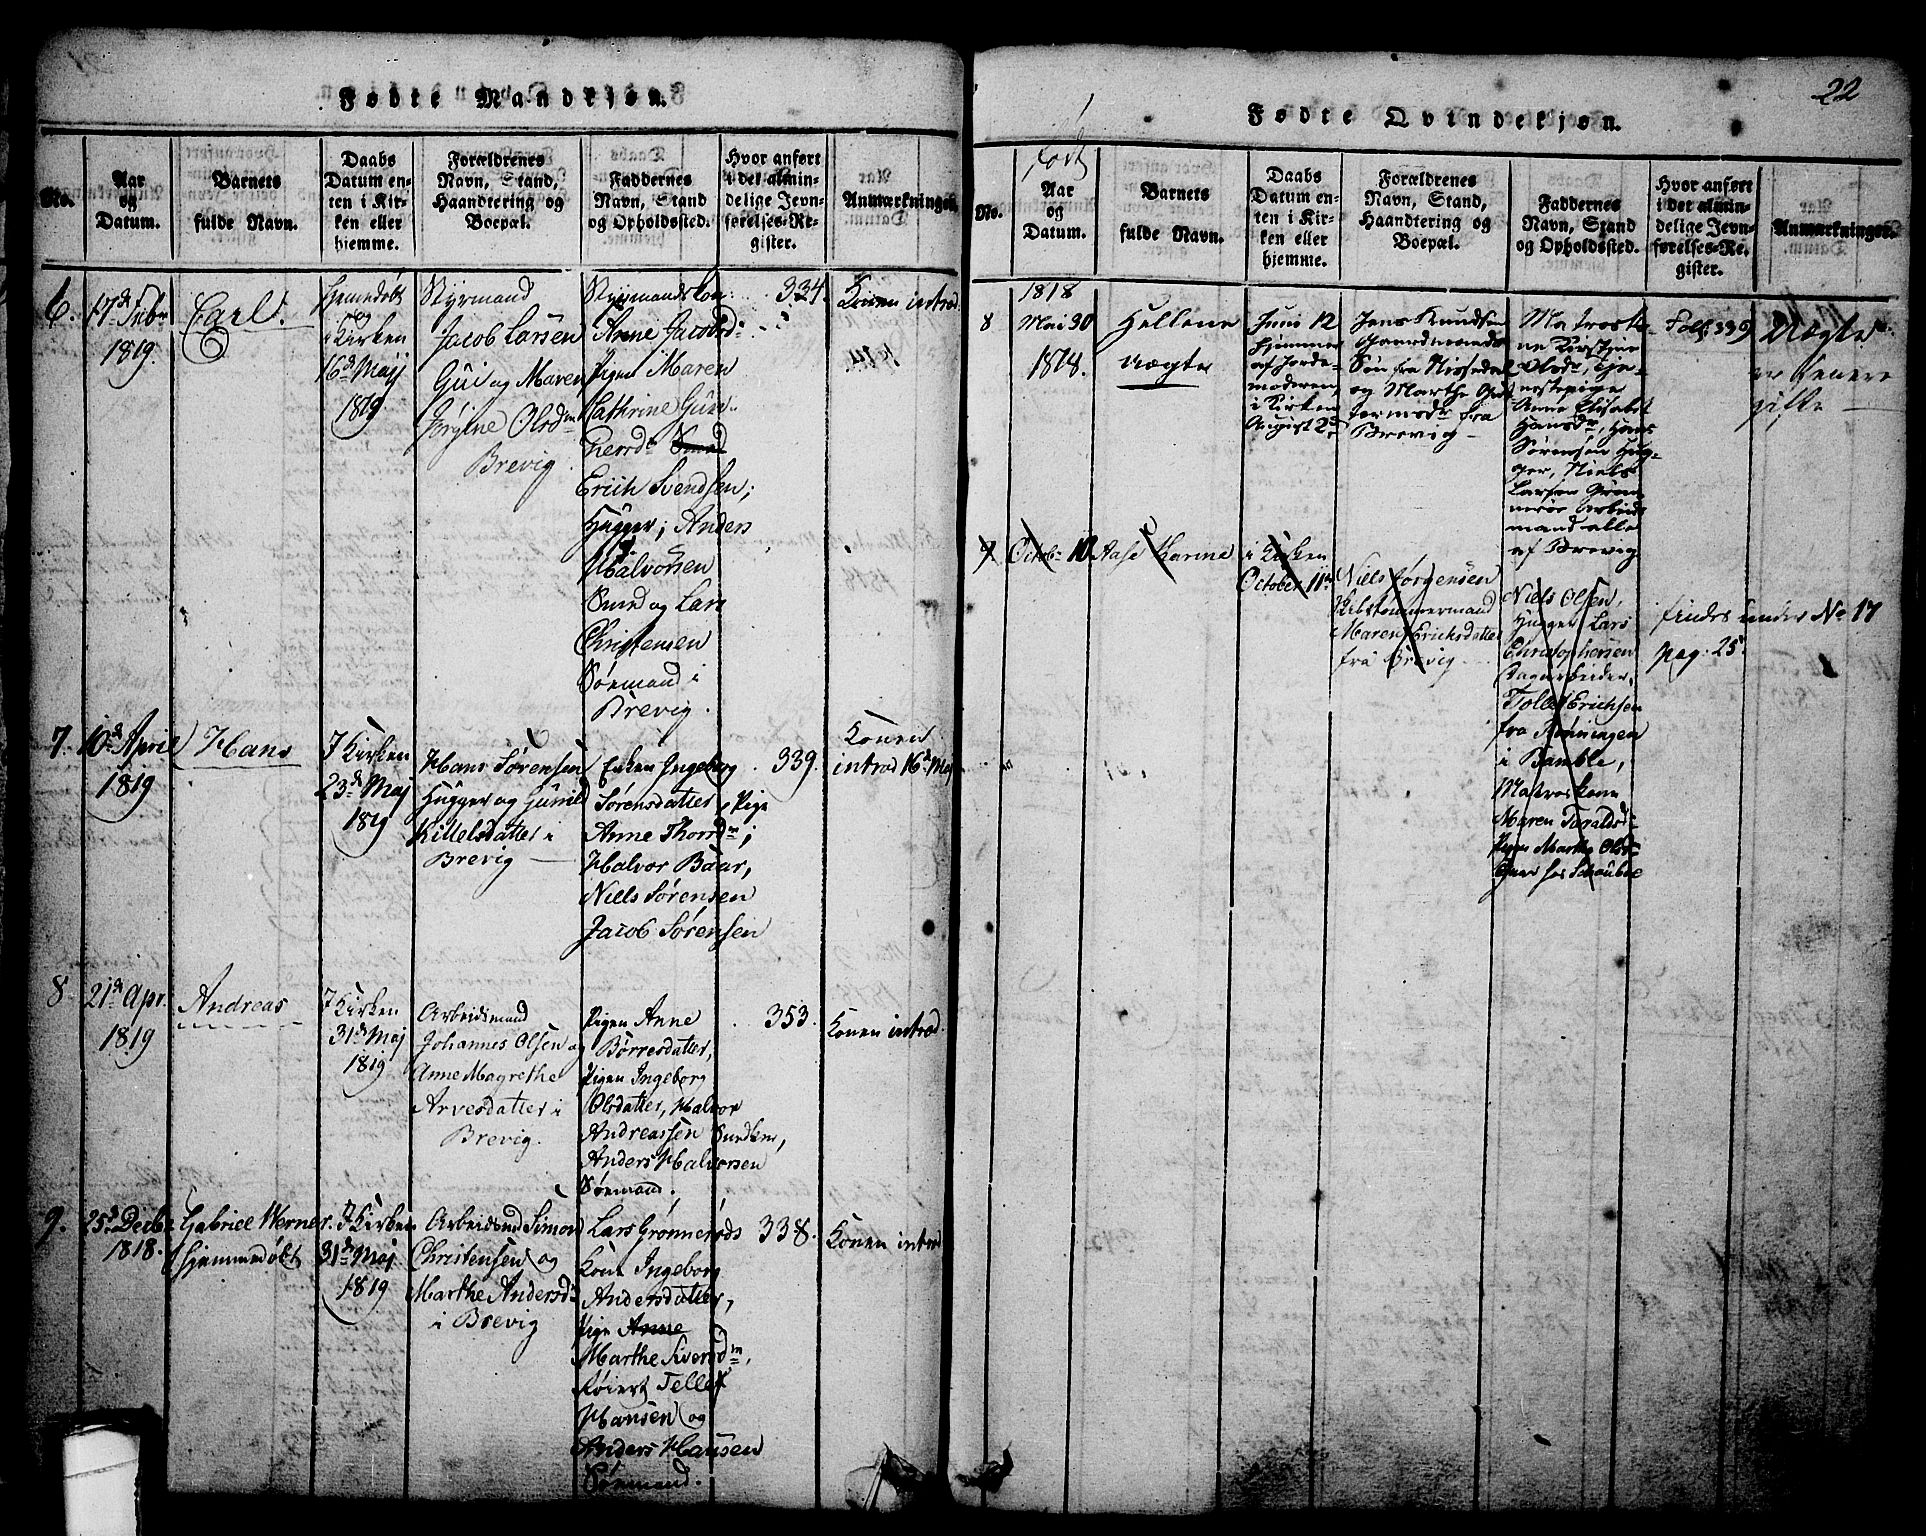 Fødte Mandkjøn.
No.
Aar
og
Datum.
Barnets
fulde Navn.
Daabs
Datum en-
ten i Kir-
ken eller
hjemme.
Forældrenes
Navn, Stand,
Haandtering og
Boepæl.
Faddernes
Navn, Stand
og Opholdssted.
Hvor anført
i det almin-
delige Jevn-
førelses-Re-
gister.
Anmærkninger.
6.
17de Febr
1819.
Carl.
Hjemedøbt
og
i Kirken
16de Maj
1819
Styrmand
Jacob Larsen
Gui og Maren
Jørgine Olsdtr
Brevig.
Styrmandskon
Anne Jacobsd:
Pigen Maren
Cathrine Gun-
Erich Svendsen,
Hugger, Anders
Halvorsen
Sund og Lars
Christensen
Sømand i
Brevig.
334.
Konen introd
7.
10de April
1819
Hans
I Kirken
23de Maj
1819
Hans Sørensen
Hugger og Gunild
Kittelsdatter i
Brevig
Enken Ingeborg
Sørensdatter, Pige
Anne Thorsdr;
Halvor Baar,
Niels Sørensen
Jacob Sørensen
339.
Konen
introd 16de Maj
8.
21de Apr.
1819
Andreas
I Kirken
31de Maj
1819
Arbeidsmand
Johannes Olsen og
Anne Magrethe
Arvesdatter i
Brevig.
Pigen Anne
Børresdatter,
Pigen Ingeborg
Olsdatter, Halvor
Andreassen
Anders Halvorsen
Sømand.
353.
Konen introd.
9.
25de Decbr
1818.
Gabriel Werner.
hjemmedøbt
I Kirken
31de Maj
1819
Arbeidsmd Simon
Christensen og
Marthe Andersd:
i Brevig
Lars Grønnerøds
Kone Ingeborg
Andersdatter,
Pige Anne
Marthe Siversdtr,
Tellef
Hansen og
Anders Hansen
Sømand.
338.
Konen introd
22
Fødte Qvindekjøn.
født
No.
Aar
og
Datum.
Barnets
fulde Navn.
Daabs
Datum en-
ten i Kir-
ken eller
hjemme.
Forældrenes
Navn, Stand,
Haandtering og
Boepæl.
Faddernes
Navn, Stand
og Opholdssted.
Hvor anført
i det almin-
delige Jevn-
førelses-Re-
gister.
Anmærkninger.
1818
8
Mai 30
1818.
Hellene
uægte
Juni 12
hjemme
af Jorde-
moderen,
i Kirken
August 2d
Jens Knudsen
Gaardmands
Søn fra Nissedal
og Marthe Gut-
tormsdr fra
Brevig
Matrosko-
ne Kirstine
Olsdr, Tje-
nestepige
Anne Elisabet
Hansdr, Hans
Sørensen Hug-
ger, Niels
Larsen Grøn-
nerød Arbeids
mand alle
af Brevig
Fol: 339
Uægte
er senere
gifte
9
Octobr 10
Aase Karine
i Kirken
October 11te
Niels Jørgensen
Skibstømmermand
Maren Erichsdatter
fra Brevig
Niels Olsen,
Hugger Lars
Christophersen
Dagarbeider,
Tollef Erichsen
fra Rønningen
i Bamble,
Matroskone
Maren Taraldsd:
Pigen Marthe Olsd:
findes under No 17
pag. 25.